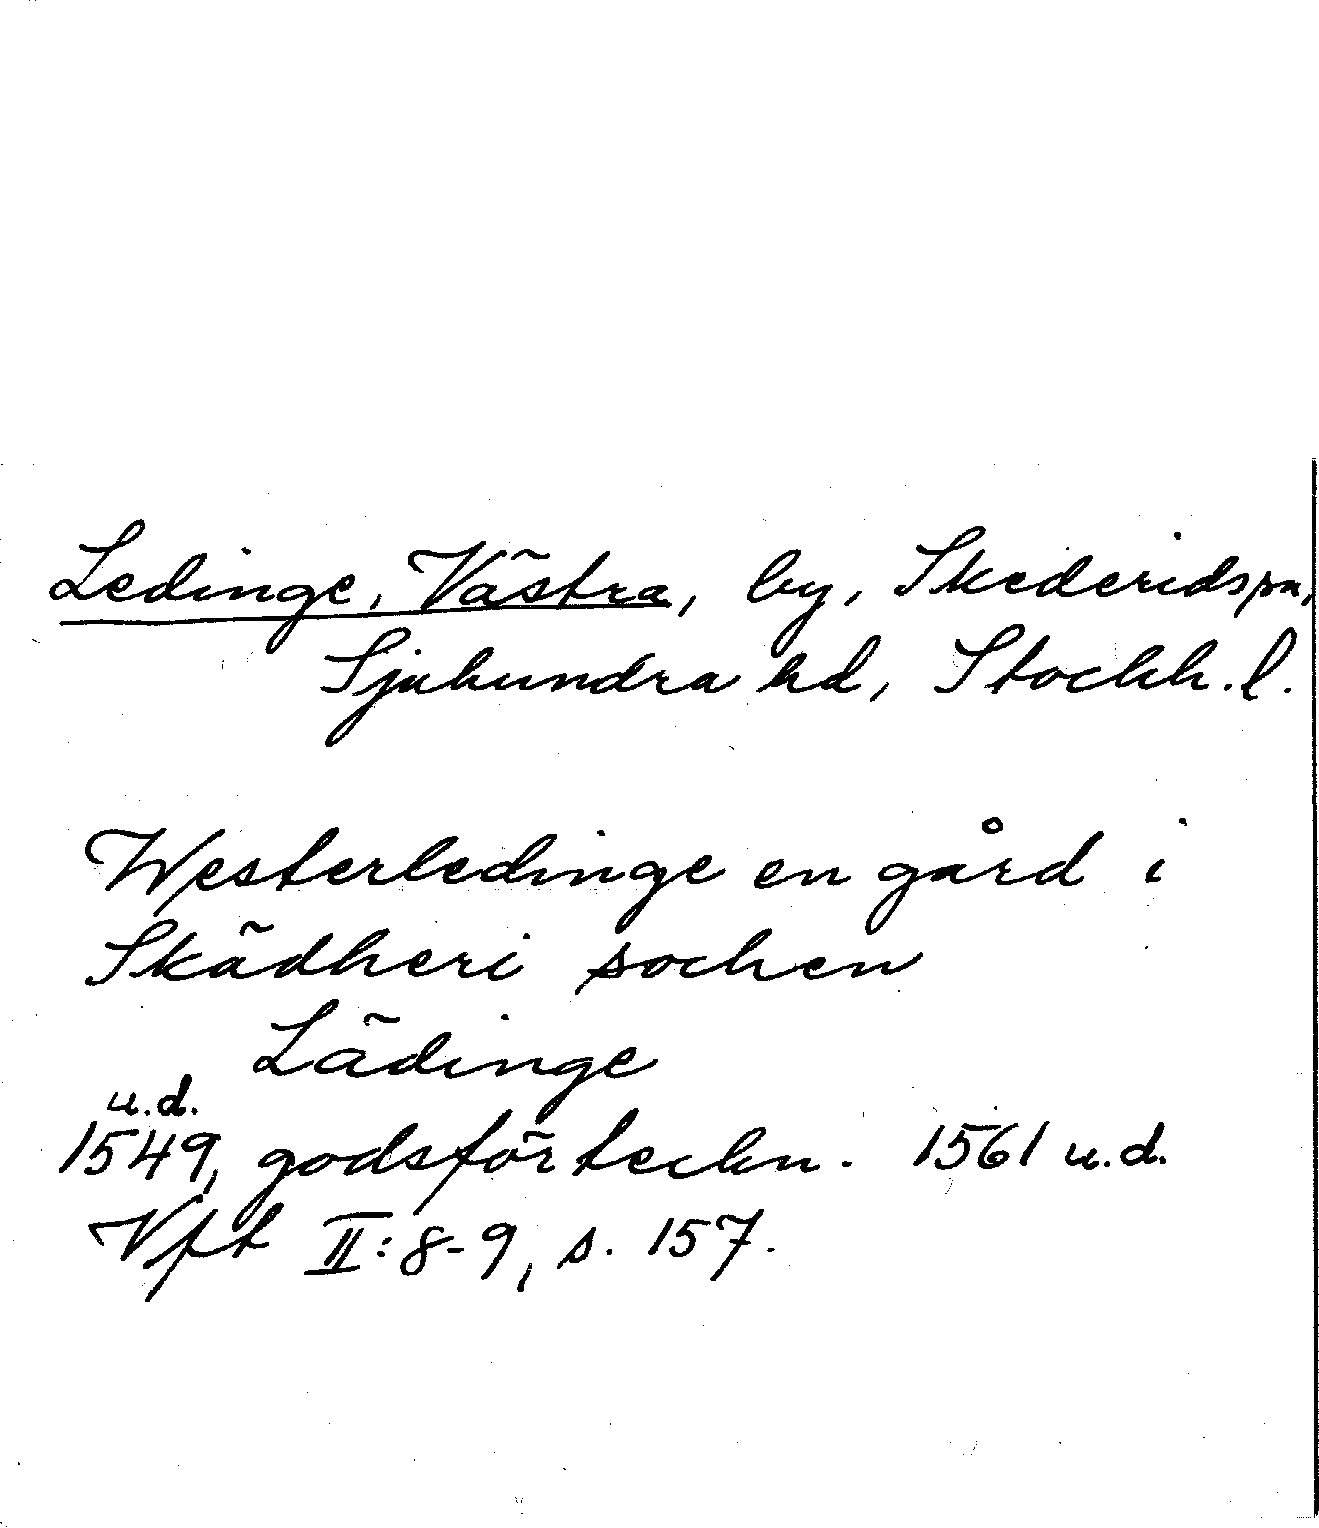 Ledinge, Västra, by, Skederidspn,
Sjuhundra hd, Stockh. l.
Westerledinge en gård i
Skädheri sochen
Lädinge
u.d.
1549, godsförteckn. 1561 u.d.
Vft II:8-9, s. 157.